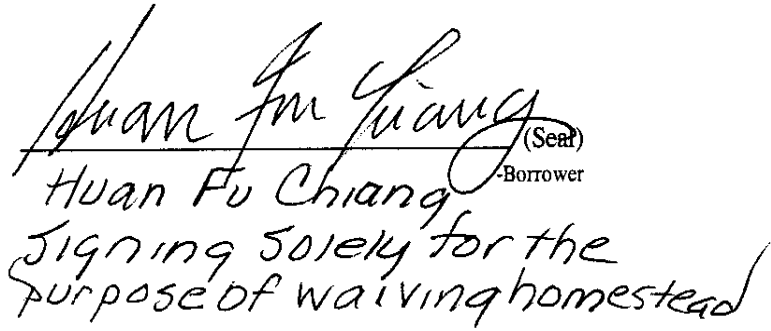 Huan Fu Chiang
(Seal)
Huan Fu Chiang -Borrower
signing solely for the
purpose of waiving homestead